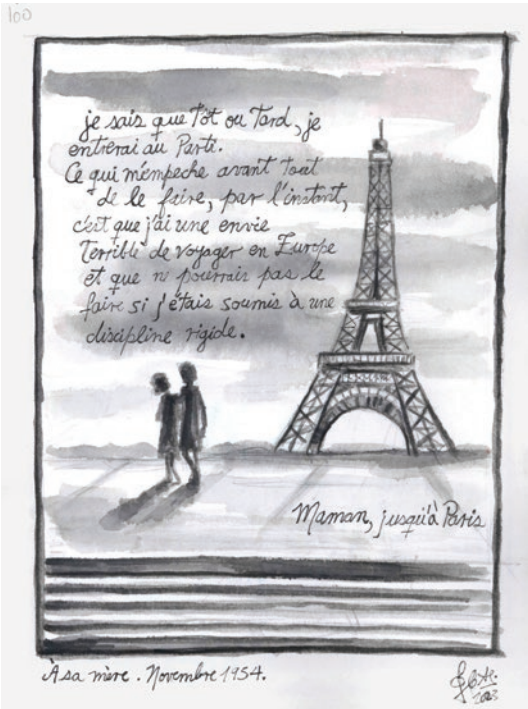 100
je sais que Tôt ou Tard, je
entrerai au Parti.
Ce qui m'empeche avant tout
de le faire, par l'instant,
c'est que j'ai une envie
Terrible de voyager en Europe
et que ne pourrais pas le
faire si j'étais soumis à une
discipline rigide.
Maman, jusqu'à Paris
À sa mère. Novembre 1954.
2023